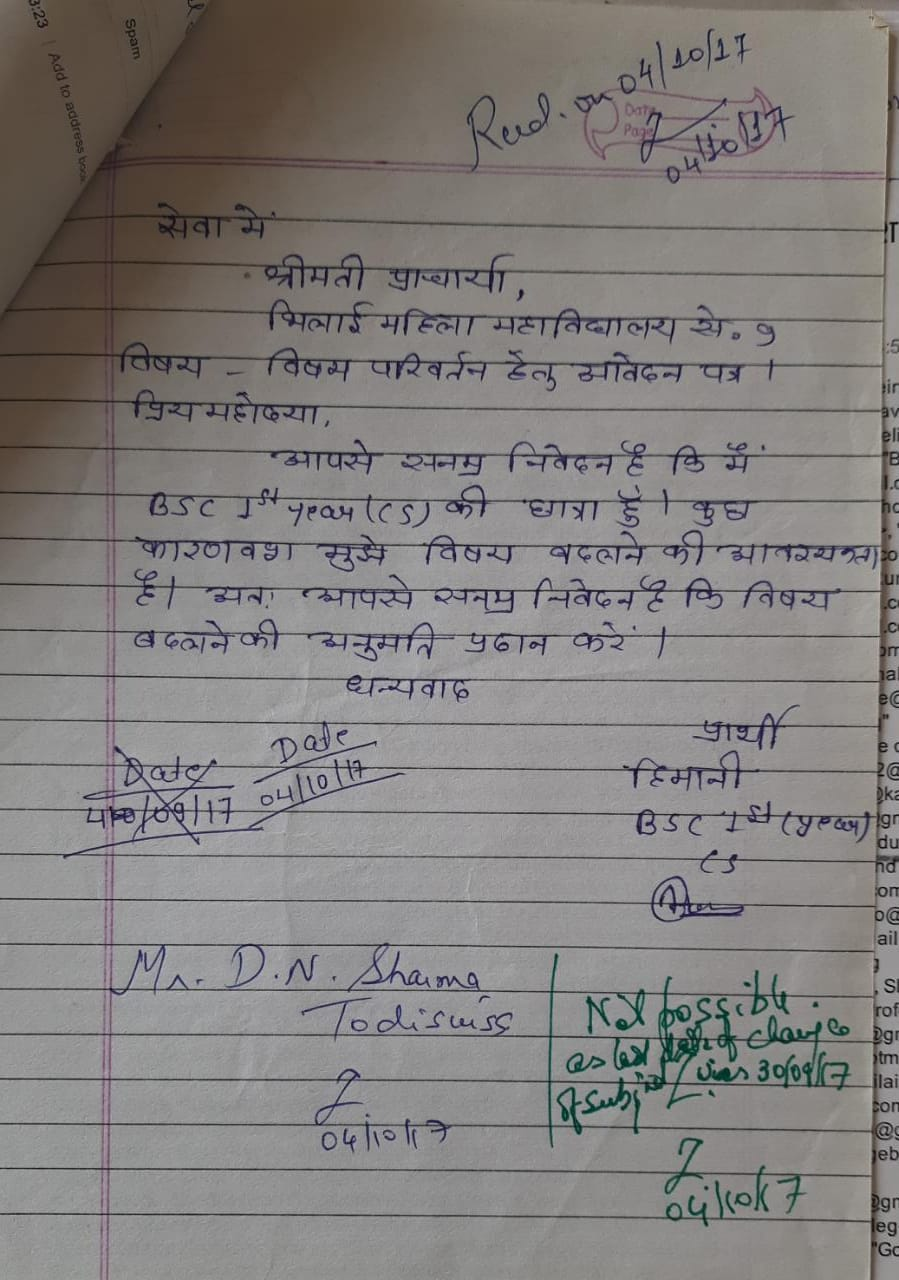 3:23 | Add to address book
Spam
Recd. on 04/10/17
Date
Page
04/10/17
सेवा में
श्रीमती प्राचार्या,
भिलाई महिला महाविद्यालय से. 9
विषय - विषय परिवर्तन हेतु आवेदन पत्र ।
प्रिय महोदया,
आपसे सनम्र निवेदन है कि मैं
BSC 1st year (CS) की छात्रा हूँ । कुछ
कारणवश मुझे विषय बदलने की आवश्यकता
है। अतः आपसे सनम्र निवेदन है कि विषय
बदलने की अनुमति प्रदान करें ।
धन्यवाद
प्रार्थी
Date
Date
04/10/17
/09/17
हिमानी
BSC 1st (year)
CS
Mr. D.N. Sharma
To discuss
04/10/17
Not possible.
as last date of change
of subject was 30/09/17
04/10/17